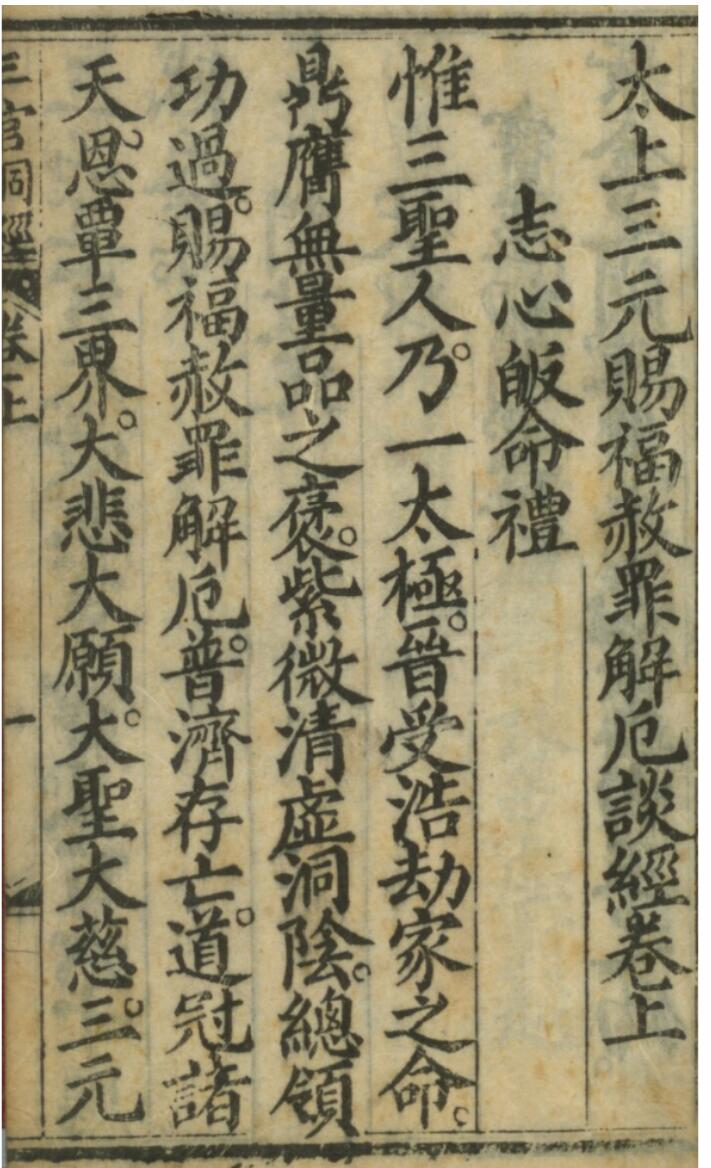 太上三元賜福赦罪解厄談經卷上
志心皈命禮
惟三聖人乃。一太極。普受浩劫家之命。
鼎膺無量品之褒。紫微清虛洞陰。總領
功過。賜福赦罪解厄。普濟存亡。道冠諸
天。恩覃三界。大悲大願。大聖大慈。三元
三官洞經 卷上 一